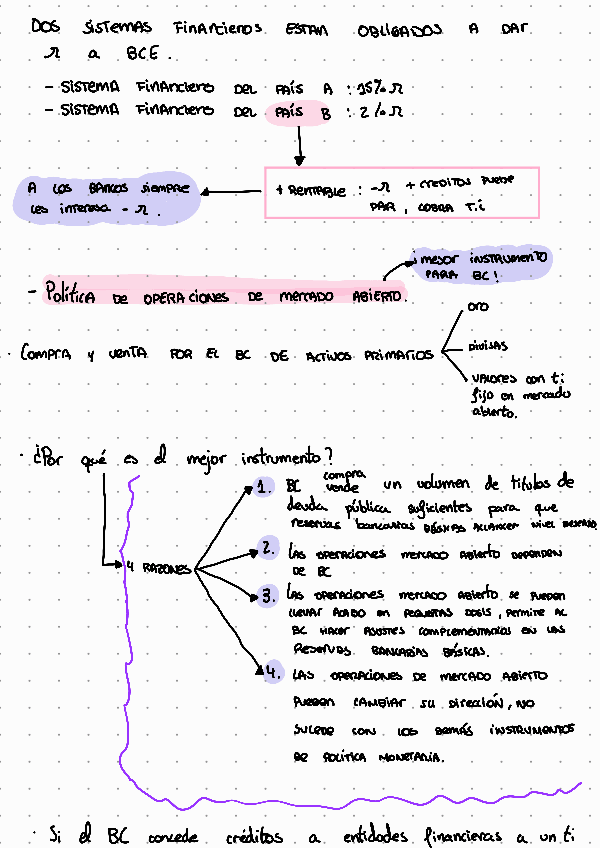 DOS SISTEMAS FINANCIEROS ESTAN OBLIGADOS A DAR
r a BCE.
- SISTEMA FINANCIERO DEL PAÍS A : 15% r
- SISTEMA FINANCIERO DEL PAÍS B : 2% r
+ RENTABLE : -r + CREDITOS PUEDE
DAR, COBRA T.i
A LOS BANCOS SIEMPRE
LES INTERESA - r.
¡MEJOR INSTRUMENTO
PARA BC!
- POLÍTICA DE OPERACIONES DE MERCADO ABIERTO.
· COMPRA Y VENTA POR EL BC DE ACTIVOS PRIMARIOS
ORO
DIVISAS
VALORES CON t i
fijo en mercado
abierto.
· ¿Por qué es el mejor instrumento?
4 RAZONES
1. BC compra
vende un volumen de títulos de
deuda pública suficientes para que
reservas bancarias BÁSICAS ALCANCEN NIVEL DESEADO
2. LAS OPERACIONES MERCADO ABIERTO DEPENDEN
DE BC
3. LAS OPERACIONES MERCADO ABIERTO SE PUEDEN
LLEVAR ACABO EN PEQUEÑAS DOSIS, PERMITE AL
BC HACER AJUSTES COMPLEMENTARIOS EN LAS
RESERVAS BANCARIAS BÁSICAS.
4. LAS OPERACIONES DE MERCADO ABIERTO
PUEDEN CAMBIAR SU DIRECCIÓN, NO
SUCEDE CON LOS DEMÁS INSTRUMENTOS
DE POLÍTICA MONETARIA.
· Si el BC concede créditos a entidades financieras a un ti